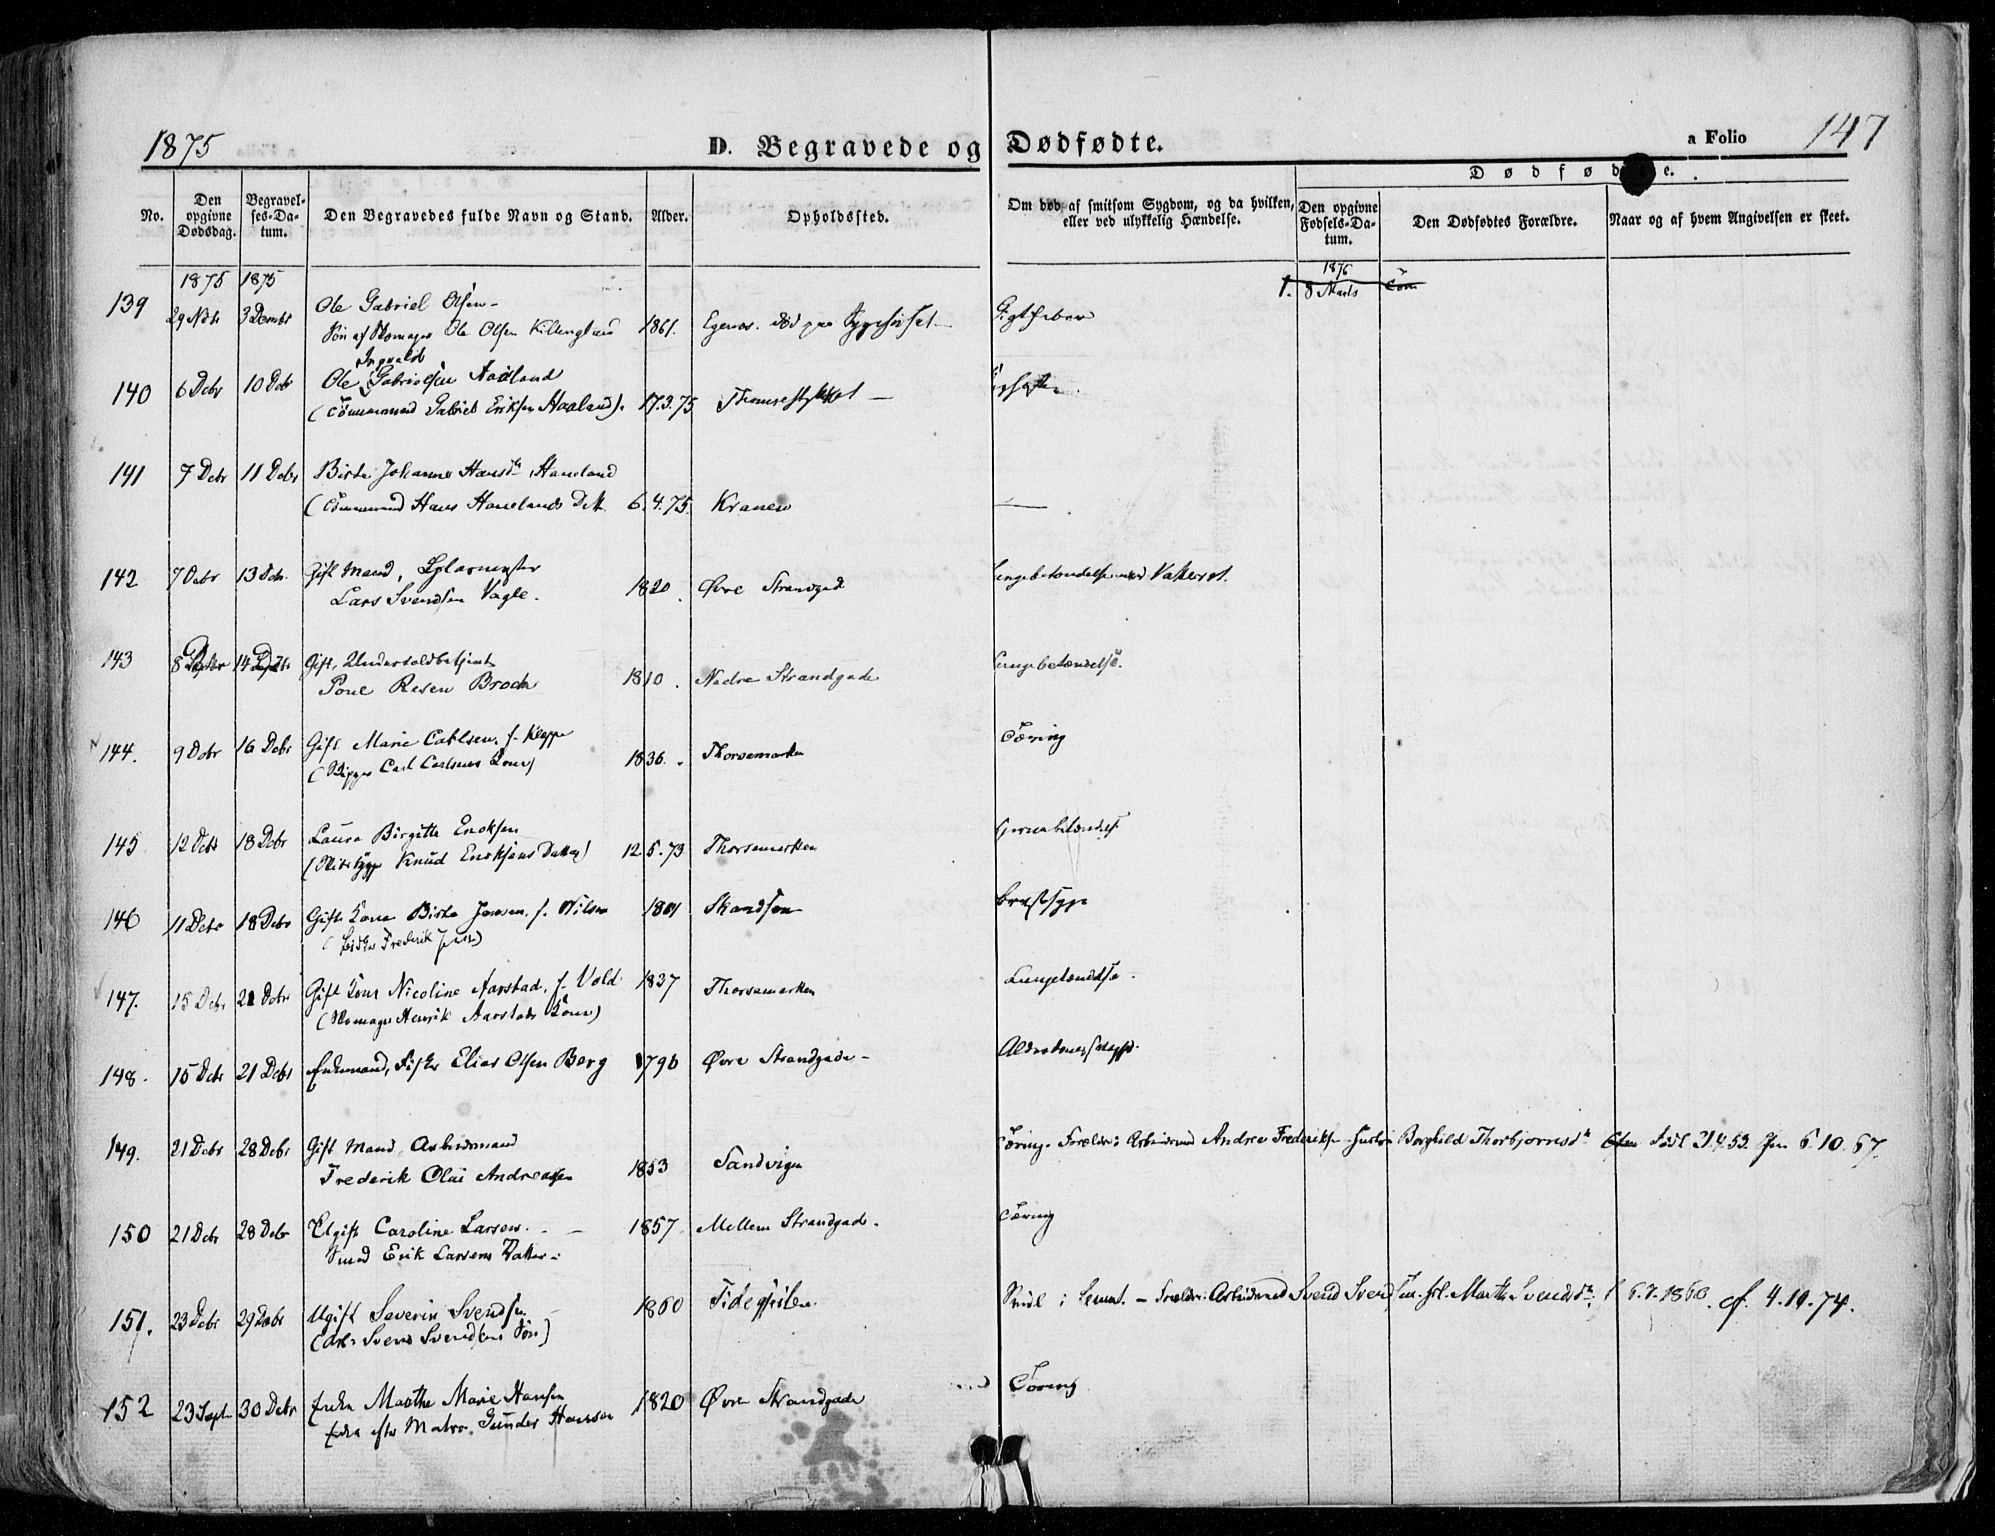 1875
D. Begravede og Dødfødte.
a Folio 147
No.
Den opgivne Dødsdag.
Begravelses-Datum.
Den Begravedes fulde Navn og Stand.
Alder.
Opholdssted.
Om død af smitsom Sygdom, og da hvilken, eller ved ulykkelig Hændelse.
Dødfødte.
Den opgivne Fødsels-Datum.
Den Dødfødtes Forældre.
Naar og af hvem Angivelsen er skeet.
1875 1875
1876
1. 8 Marts
139 29 Nbr 3 Dembr Ole Gabriel Olsen - 1861. Egernes. død paa Sygehuset - Gigtfeber
Søn af Skomager Ole Olsen
Ingvald
140 6 Debr 10 Debr Ole Gabrielsen Aaland 17.3.75 -
Gabriel Eriksen Haaland).
141 7 Debr 11 Debr Birte Johanne Hansd. Haneland
( Hans Hanelands Datt. 6.4.75. Kranen -
142 7 Debr 13 Deb. Gift Mand,
Lars Svendsen Vagle. 1820. Øvre Strandgade Lungebetændelse med Vattersot.
143 8 Debr 14 Debr Gift, Undertoldbetjent
Poul Resen Broch 1810. Nedre Strandgade Lungebetændelse.
144. 9 Debr 16 Debr Gift Marie Carlsen, f. Kleppe
( Carl Carlsens Kone) 1836. Thorsemarken Tæring
145 12 Debr 18 Debr Laura Birgitte Enoksen
( Knud Enoksens Datter) 12.5.73 Thorsemarken
146 11 Debr 18 Debr Gift Kone Birte Jensen, f. Nilsen 1801 Skandsen Brystsyge
(Fisker Frederik Jensen)
147. 15 Debr 21 Debr Gift Kone Nicoline Aarstad, f. Vold 1837 Thorsemarken
(Skomager Henrik Aarstads Kone)
148. 15 Debr 21 Debr Enkemand, Fisker Elias Olsen Berg 1796 Øvre Strandgade - Alderdomssvaghed.
149. 21 Debr 28 Debr Gift Mand, Arbeidsmand
Frederik Olai Andreassen 1853 Sandvigen Tæring. Forældre: Arbeidsmand Andreas Frederiksen Hustru Borghild Thorbjørnsd. født 21.4.53. 6.10.67.
150 21 Debr 28 Debr Ugift Caroline Larsen. - - 1857 Mellem Strandgade. Tæring
Smed Erik Larsens Datter -
151. 23 Debr 29 Debr Ugift Severin Svendsen - 1860 - Forældre: Arbeidsmand Svend Svendsen Marthe Svendsd. f 6.7.1860. cf. 4.10.74.
(Arb. Svend Svendsens Søn)
152 23 Sept. 30 Debr Enke Marthe Marie Hansen 1820 Øvre Strandgade Tæring
Enke efter Matros Gunder Hansen